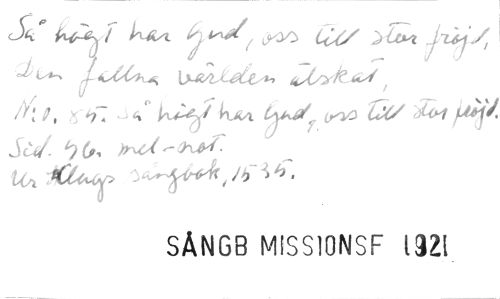 Så högt har Gud, oss till stor fröjd,
Den fallna världen älskat,
N:o. 85. Så högt har Gud, oss till stor fröjd.
Sid. 96. mel-not.
Ur Klugs sångbok, 1535.
SÅNGB MISSIONSF 1921